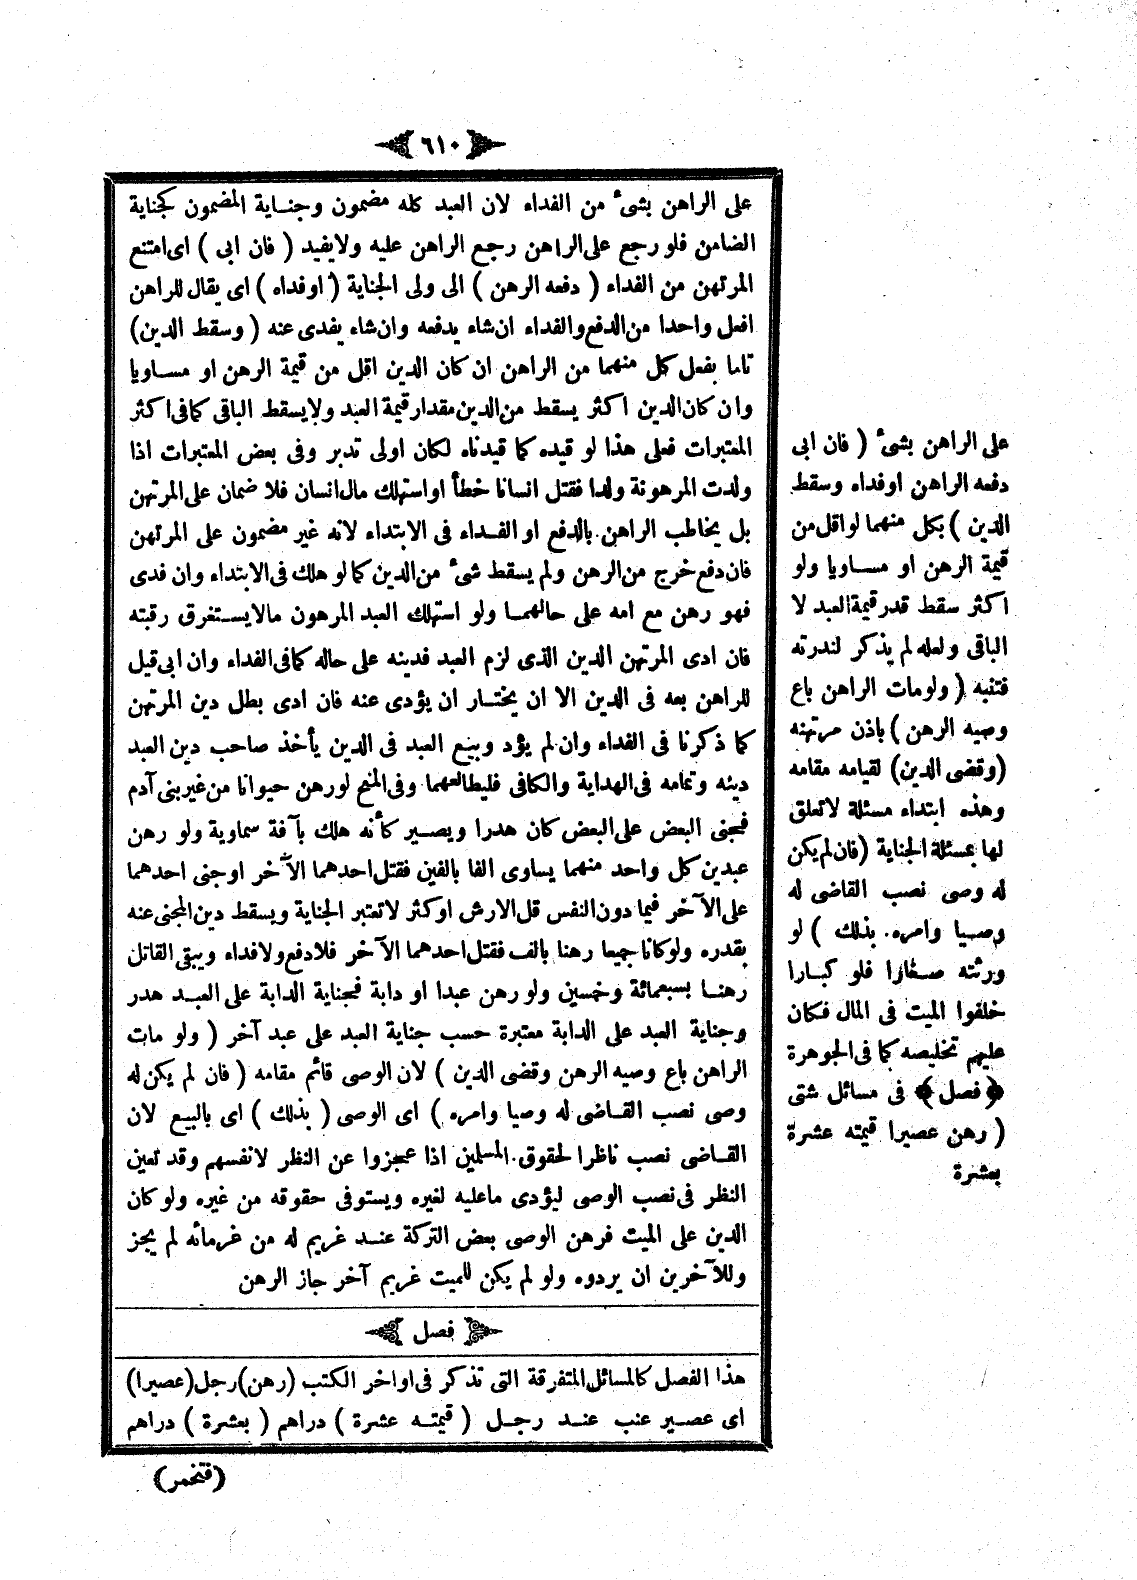 ٦١٠
على الراهن بشىء من الفداء لان العبد كله مضمون وجناية المضمون كجناية
الضامن فلو رجع على الراهن رجع الراهن عليه ولا يفيد ( فان ابى ) اى امتنع
المرتهن من الفداء ( دفعه الرهن ) الى ولى الجناية ( اوفداه ) اى يقال للراهن
افعل واحدا من الدفع والفداء ان شاء يدفعه وان شاء يفدى عنه ( وسقط الدين )
تاما بفعل كل منهما من الراهن ان كان الدين اقل من قيمة الرهن او مساويا
وان كان الدين اكثر يسقط من الدين مقدار قيمة العبد ولا يسقط الباقى كما فى اكثر
المعتبرات فعلى هذا لو قيده كما قيدناه لكان اولى تدبر وفى بعض المعتبرات اذا
ولدت المرهونة ولدا فقتل انسانا خطأ او استهلك مال انسان فلا ضمان على المرتهن
بل يخاطب الراهن بالدفع او الفداء فى الابتداء لانه غير مضمون على المرتهن
فان دفع خرج من الرهن ولم يسقط شىء من الدين كما لو هلك فى الابتداء وان فدى
فهو رهن مع امه على حالهما ولو استهلك العبد المرهون مالا يستغرق رقبته
فان ادى المرتهن الدين الذى لزم العبد فدينه على حاله كما فى الفداء وان ابى قيل
للراهن بعه فى الدين الا ان يختار ان يؤدى عنه فان ادى بطل دين المرتهن
كما ذكرنا فى الفداء وان لم يؤد وبيع العبد فى الدين يأخذ صاحب دين العبد
دينه وتمامه فى الهداية والكافى فليطالعهما وفى المنح لو رهن حيوانا من غير بنى آدم
فجنى البعض على البعض كان هدرا ويصير كأنه هلك بآفة سماوية ولو رهن
عبدين كل واحد منهما يساوى الفا بالفين فقتل احدهما الآخر او جنى احدهما
على الآخر فيما دون النفس قل الارش او كثر لا تعتبر الجناية ويسقط دين المجنى عنه
بقدره ولو كانا جميعا رهنا بالف فقتل احدهما الآخر فلا دفع ولا فداء ويبقى القاتل
رهنا بسبعمائة وخمسين ولو رهن عبدا او دابة فجناية الدابة على العبد هدر
وجناية العبد على الدابة معتبرة حسب جناية العبد على عبد آخر ( ولو مات
الراهن باع وصيه الرهن وقضى الدين ) لان الوصى قائم مقامه ( فان لم يكن له
وصى نصب القاضى له وصيا وامره ) اى الوصى ( بذلك ) اى بالبيع لان
القاضى نصب ناظرا لحقوق المسلمين اذا عجزوا عن النظر لانفسهم وقد تعين
النظر فى نصب الوصى ليؤدى ما عليه لغيره ويستوفى حقوقه من غيره ولو كان
الدين على الميت فرهن الوصى بعض التركة عند غريم له من غرمائه لم يجز
وللآخرين ان يردوه ولو لم يكن للميت غريم آخر جاز الرهن
فصل
هذا الفصل كالمسائل المتفرقة التى تذكر فى اواخر الكتب ( رهن ) رجل ( عصيرا )
اى عصير عنب عند رجل ( قيمته عشرة ) دراهم ( بعشرة ) دراهم
( فتخمر )
على الراهن بشىء ( فان ابى
دفعه الراهن اوفداه وسقط
الدين ) بكل منهما لو اقل من
قيمة الرهن او مساويا ولو
اكثر سقط قدر قيمة العبد لا
الباقى ولعله لم يذكر لندرته
فتنبه ( ولومات الراهن باع
وصيه الرهن ) باذن مرتهنه
( وقضى الدين ) لقيامه مقامه
وهذه ابتداء مسئلة لا تعلق
لها بمسئلة الجناية ( فان لم يكن
له وصى نصب القاضى له
وصيا وامره بذلك ) لو
ورثته صغارا فلو كبارا
خلفوا الميت فى المال فكان
عليهم تخليصه كما فى الجوهرة
﴿ فصل ﴾ فى مسائل شتى
( رهن عصيرا قيمته عشرة
بعشرة